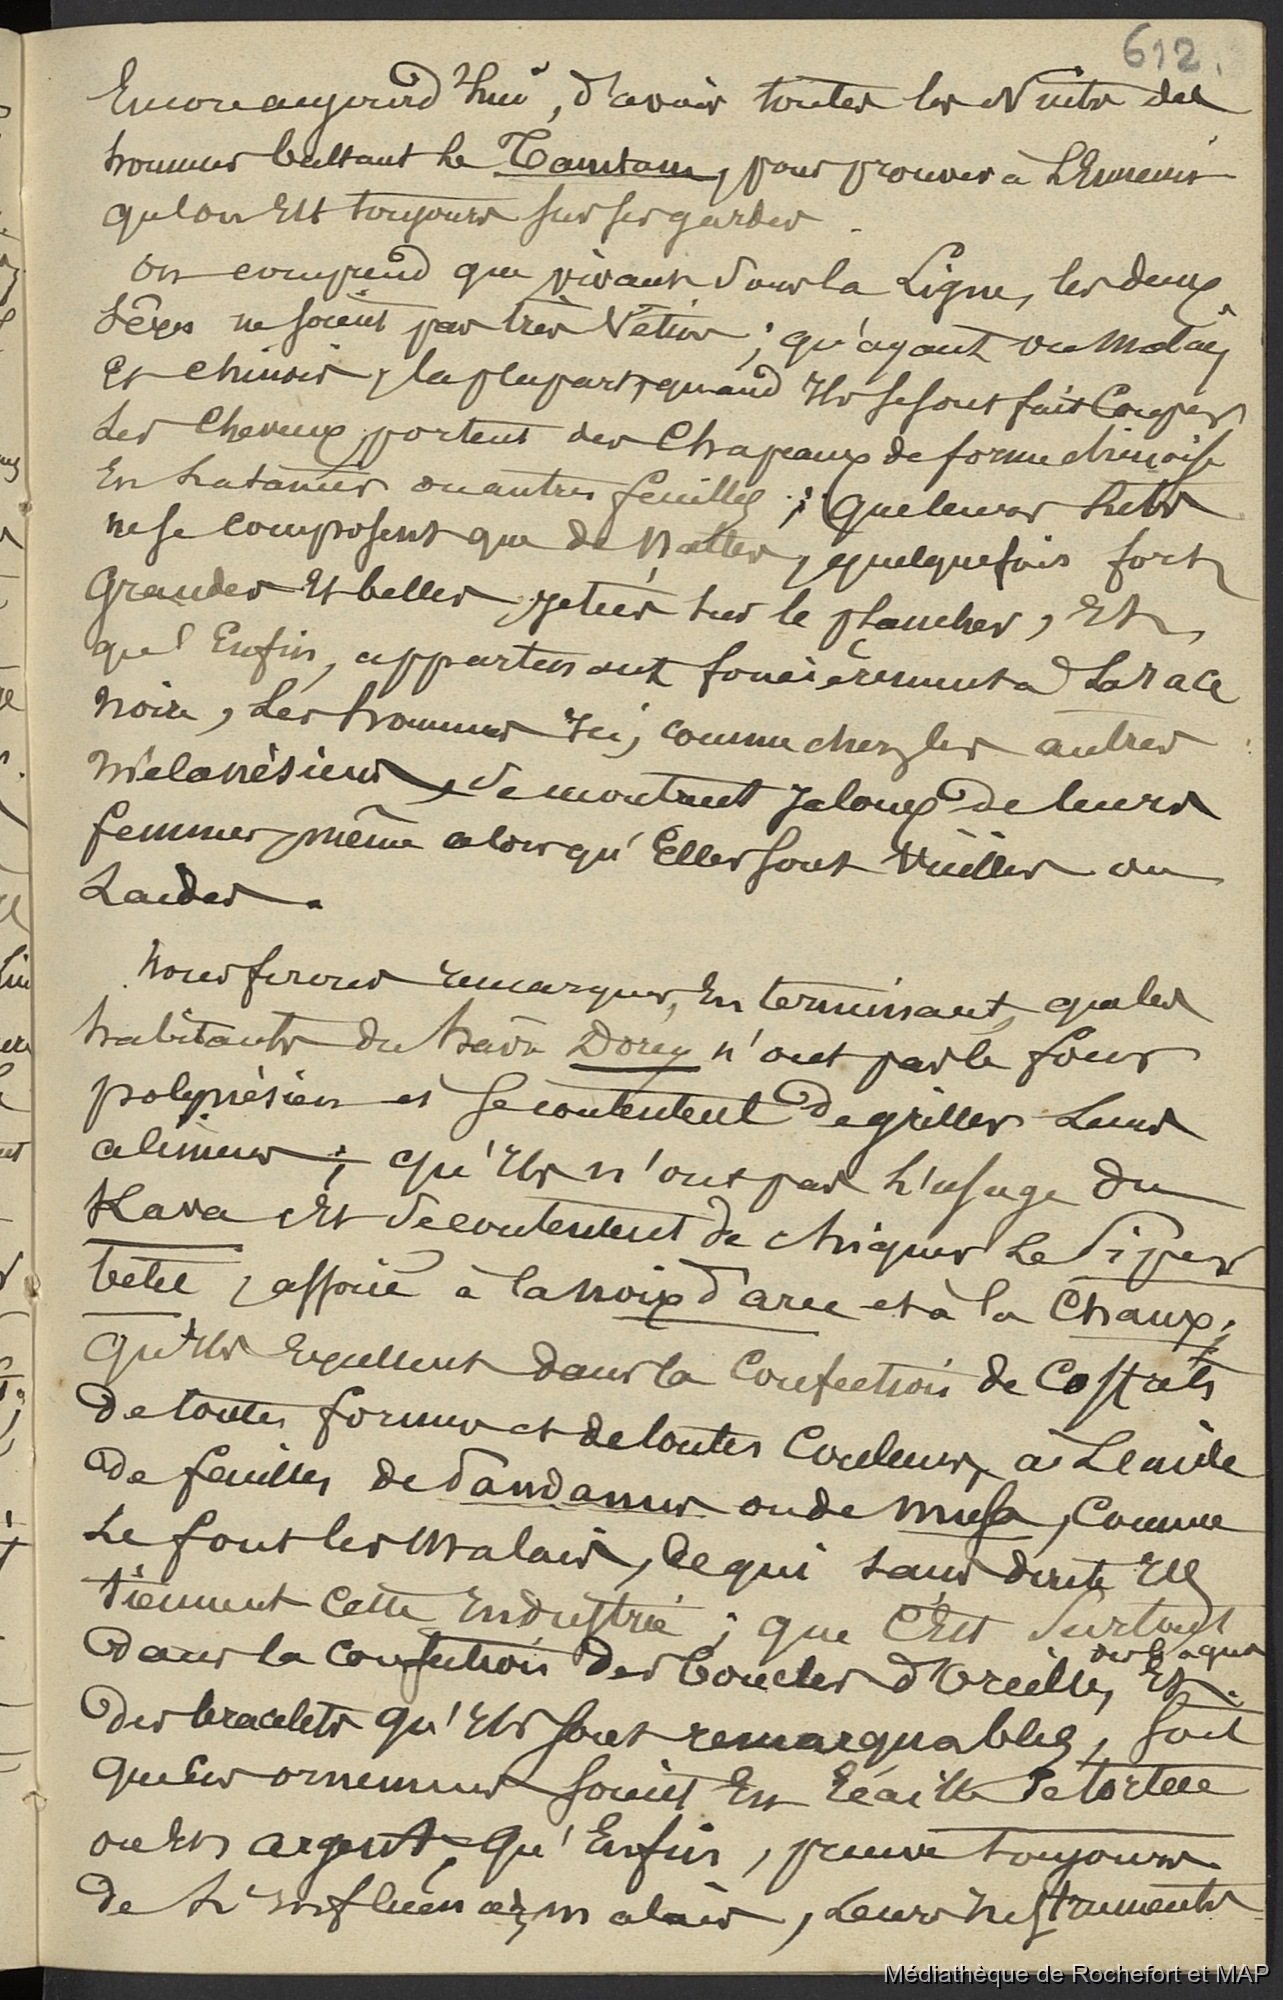 612.
Encore aujourd'hui, d'avoir toutes les Nuits des
hommes battant le Tamtam, pour prouver à L'Ennemi
qu'on Est toujours sur ses gardes.
On comprend que vivant sous la Ligne, les deux
Sèxes ne soient pas très Vêtus; qu'ayant vu Malais
Et Chinois, la plupart, quand Ils se sont fait Couper
Les Cheveux, portent des Chapeaux de forme chinoise
En Latanier ou autres feuilles; que leurs Lits
ne se composent que de Nattes, quelquefois fort
Grandes Et belles, jetées sur le plancher, Et
qu'Enfin, appartenant foncièrement à La race
Noire, Les hommes Ici, comme chez les autres
Mélanésiens, se montrent Jaloux de leurs
femmes, même alors qu'Elles sont Vieilles ou
Laides.
Nous ferons remarquer, En terminant, que les
habitants du havre Dorey n'ont pas le four
polynésien et se contentent de griller Leurs
alimens; qu'Ils n'ont pas L'usage du
Kava et se contentent de chiquer Le Piper
betel, associé à la noix d'arec et à la Chaux;
Qu'Ils Excellent dans la Confection de Coffrets
de toutes formes et de toutes Couleurs, à L'aide
de feuilles de Pandanus ou de Musa, Comme
Le font les Malais, de qui sans doute Ils
tiennent Cette Industrie; que C'Est Surtout
dans la confection des boucles d'Oreille, des bagues Et
des bracelets qu'Ils sont remarquables, soit
que Ces ornemens soient En Écaille de tortue
ou En argent; Qu'Enfin, preuve toujours
de L'Influence malaise, Leurs Instruments
Médiathèque de Rochefort et MAP